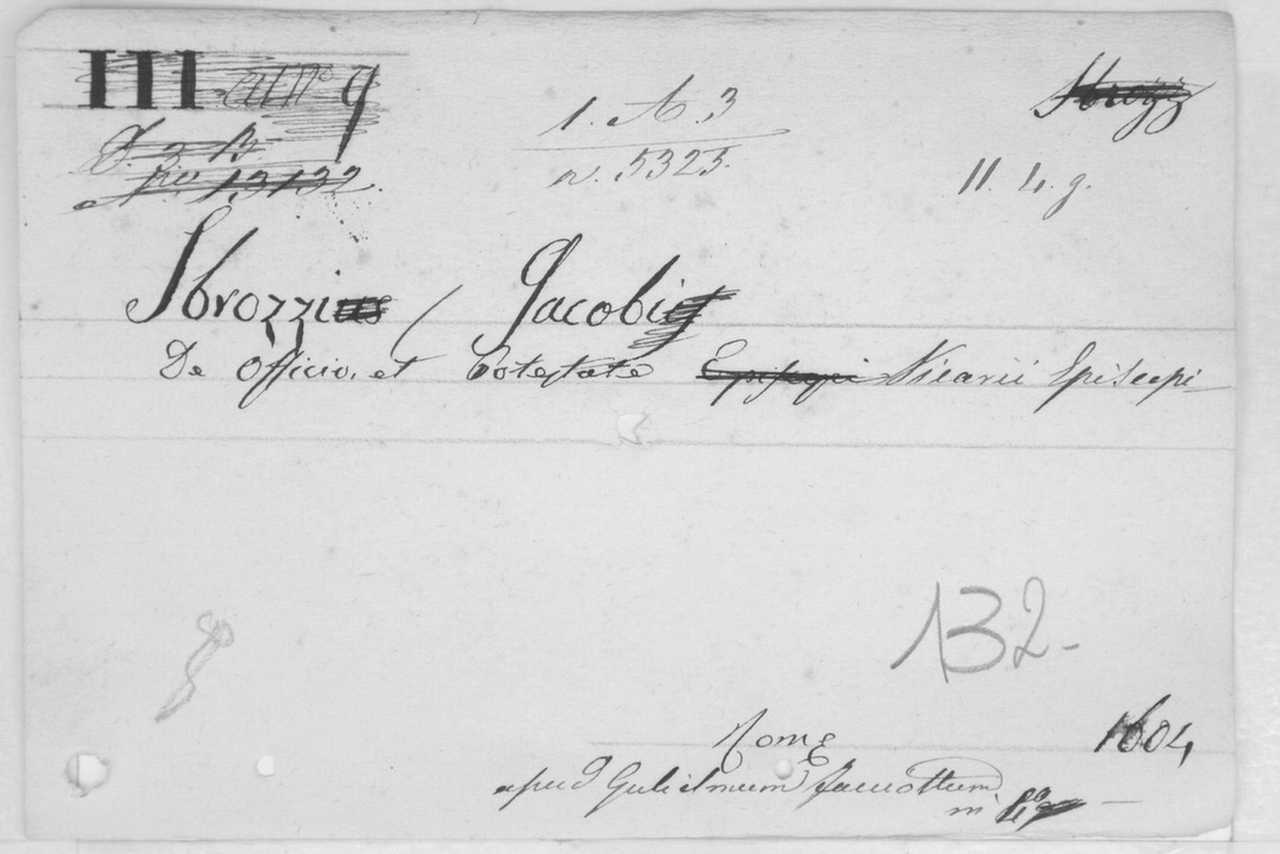 III q
J. 3 B.
No 13132.
1. A. 3
n. 5325.
Sbrozz
11. 4. g.
Sbrozzius / Jacobi
De officio, et Potestate Episcopi Vicarii Episcopi
132-
Romę 1604
apud Gulielmum Facciottum
in 4º